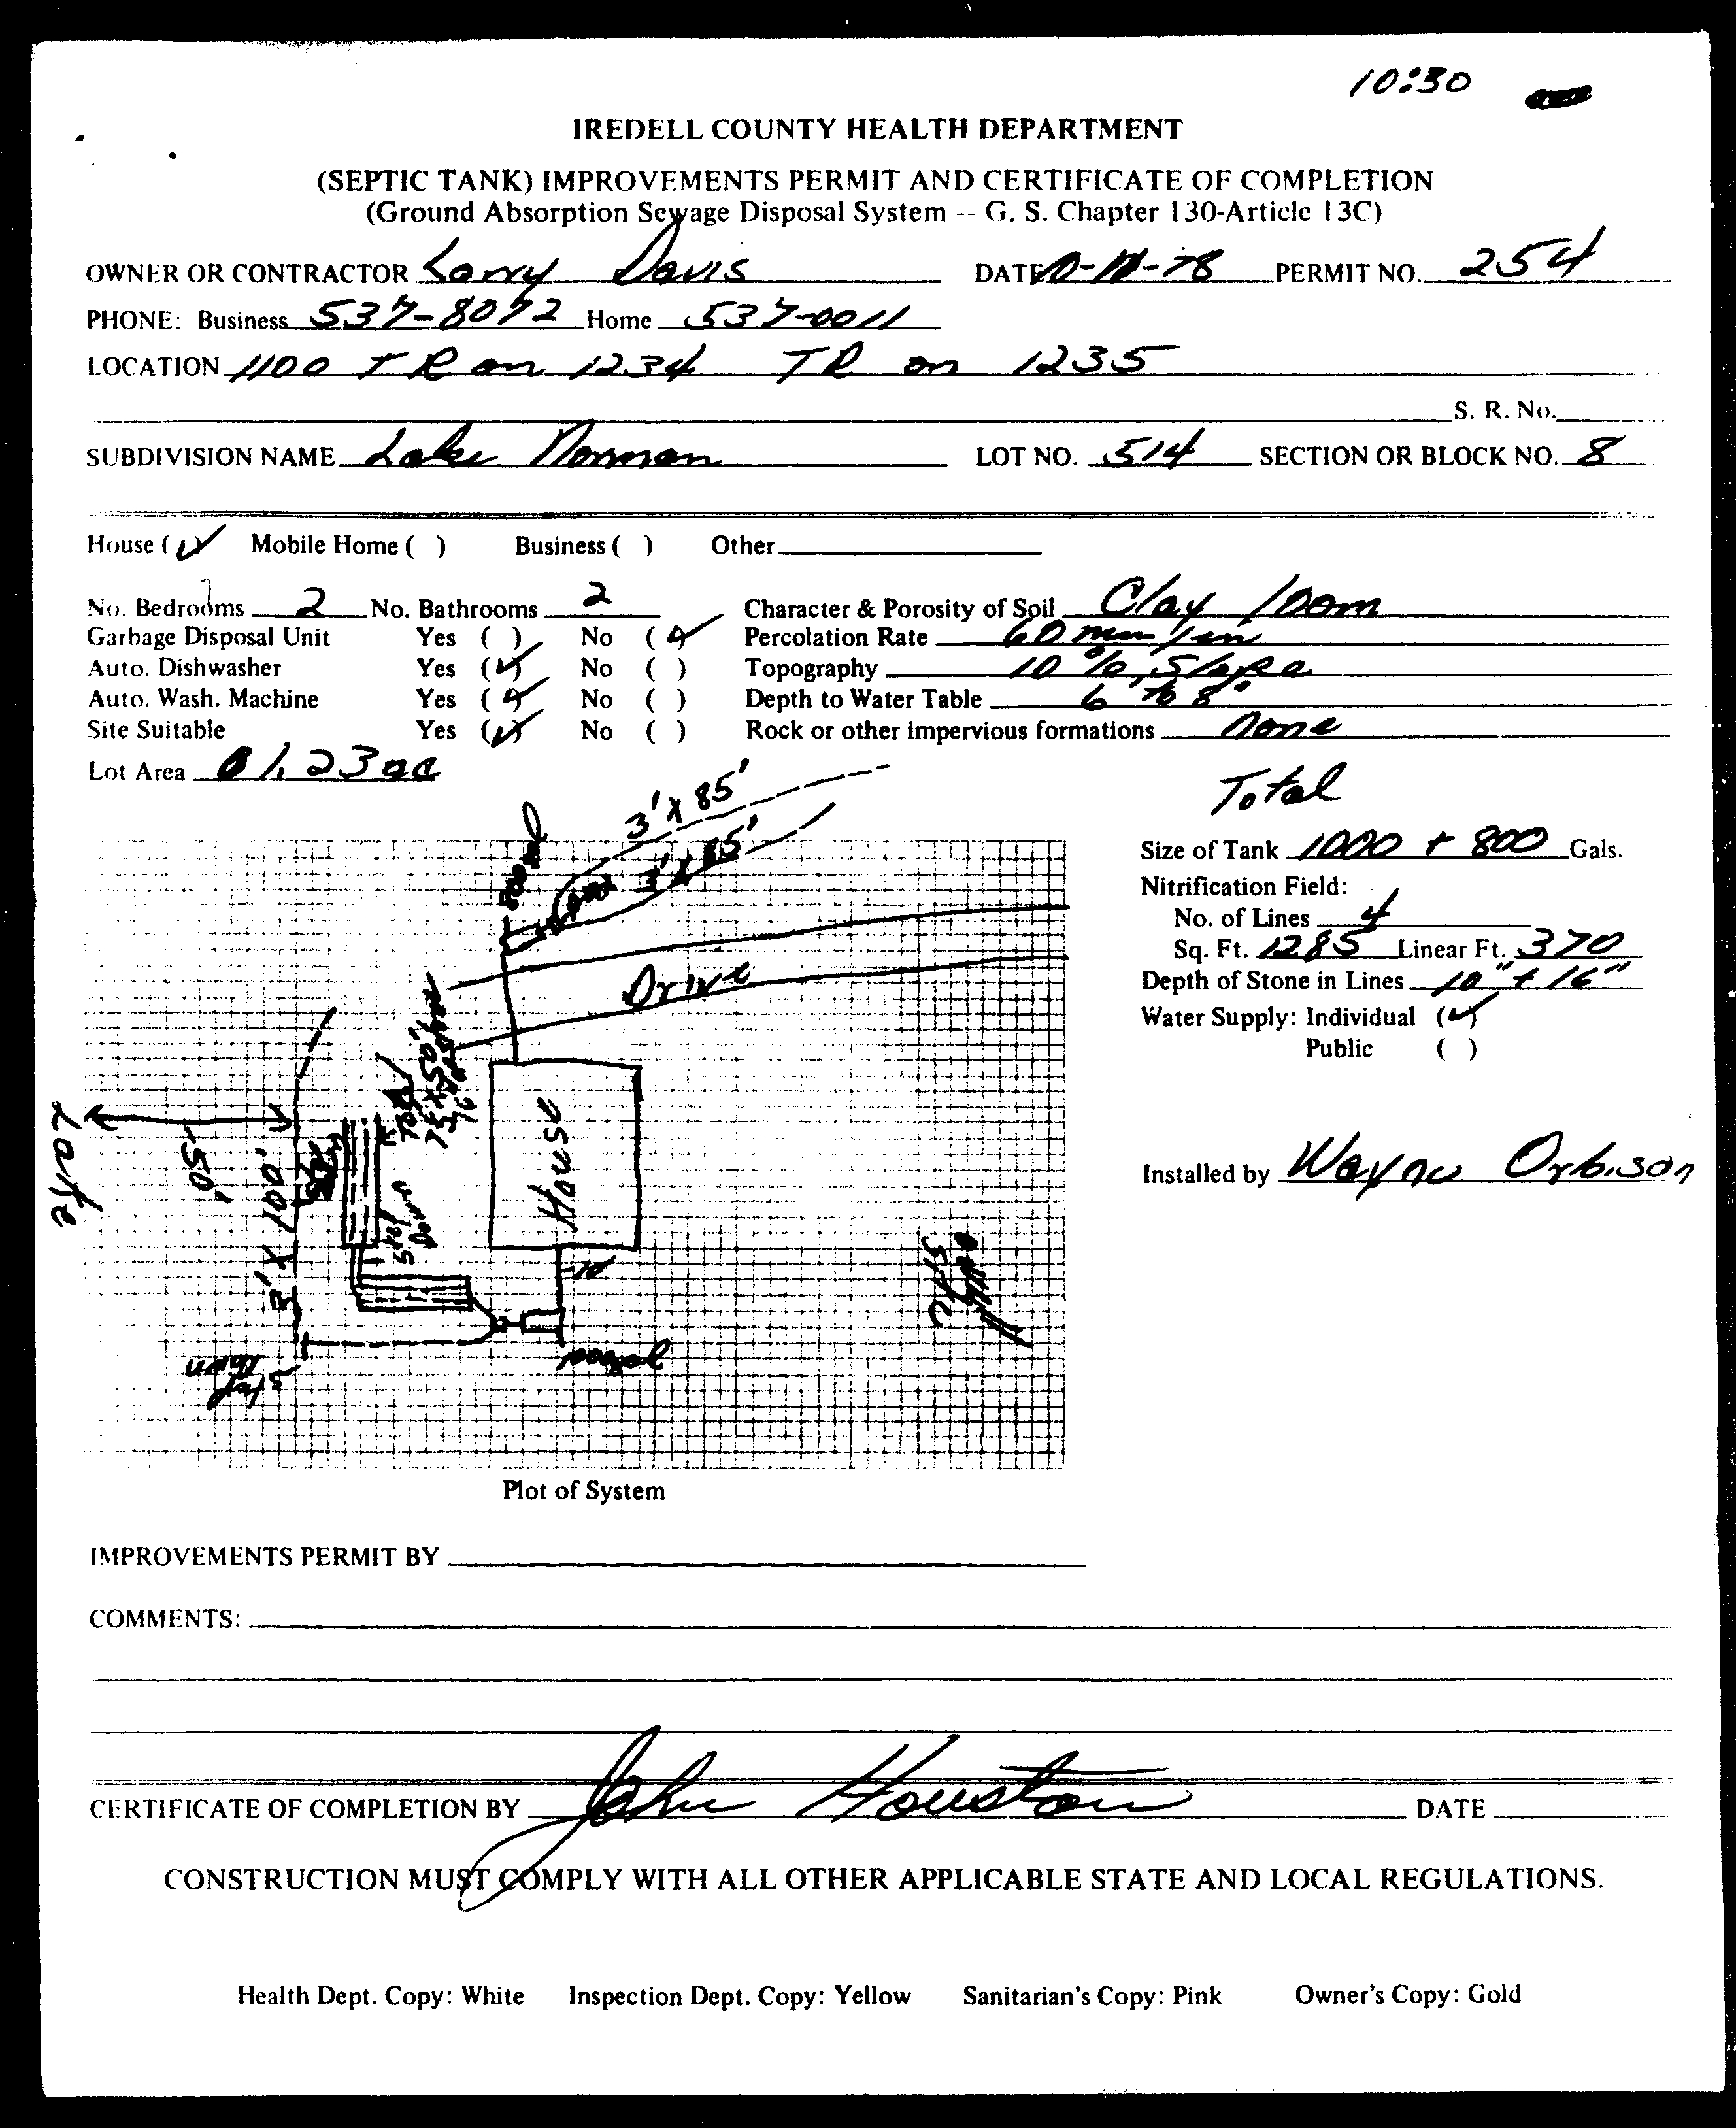 10:30
IREDELL COUNTY HEALTH DEPARTMENT
(SEPTIC TANK) IMPROVEMENTS PERMIT AND CERTIFICATE OF COMPLETION
(Ground Absorption Sewage Disposal System -- G. S. Chapter 130-Article 13C)
OWNER OR CONTRACTOR Larry Davis DATE -78 PERMIT NO. 254
PHONE: Business 537-8072 Home 537-0011
LOCATION 1100 TR on 1234 TR on 1235
S. R. No.
SUBDIVISION NAME Lake Norman LOT NO. 514 SECTION OR BLOCK NO. 8
House (✓) Mobile Home ( ) Business ( ) Other
No. Bedrooms 2 No. Bathrooms 2 Character & Porosity of Soil Clay loam
Garbage Disposal Unit Yes ( ) No (✓) Percolation Rate 60 min/in
Auto. Dishwasher Yes (✓) No ( ) Topography 10%, Slope
Auto. Wash. Machine Yes (✓) No ( ) Depth to Water Table 6' to 8'
Site Suitable Yes (✓) No ( ) Rock or other impervious formations none
Lot Area 1.23 ac
Total
3' X 85'
3' X 85'
800 gal
Size of Tank 1000 + 800 Gals.
Nitrification Field:
No. of Lines 4
Sq. Ft. 1285 Linear Ft. 370
Depth of Stone in Lines 10" + 16"
Water Supply: Individual (✓)
Public ( )
Drive
House
Lake
50'
3' X 100'
Step Down
10'
Step Down
Installed by Wayne Orbison
Plot of System
IMPROVEMENTS PERMIT BY
COMMENTS:
CERTIFICATE OF COMPLETION BY John Houston DATE
CONSTRUCTION MUST COMPLY WITH ALL OTHER APPLICABLE STATE AND LOCAL REGULATIONS.
Health Dept. Copy: White Inspection Dept. Copy: Yellow Sanitarian's Copy: Pink Owner's Copy: Gold